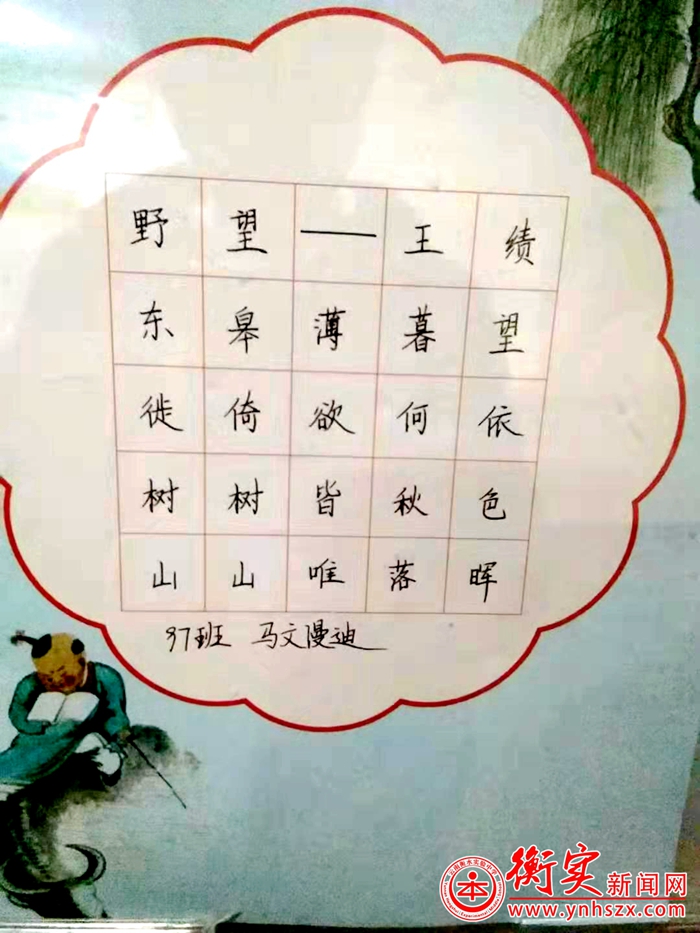 野望——王绩
东皋薄暮望
徙倚欲何依
树树皆秋色
山山唯落晖
97班 马文漫迪
衡实新闻网
www.ynhszx.com